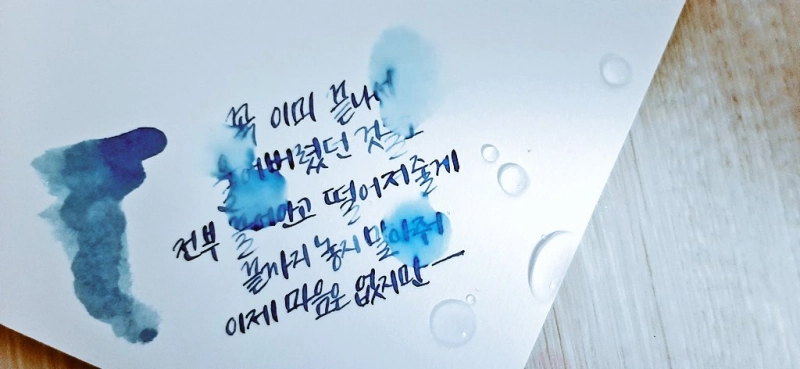 꼭 이미 끝나서
버렸던 것들
전부 끌어안고 떨어져줄게
끝까지 놓지 말아줘
이제 마음은 없지만ー